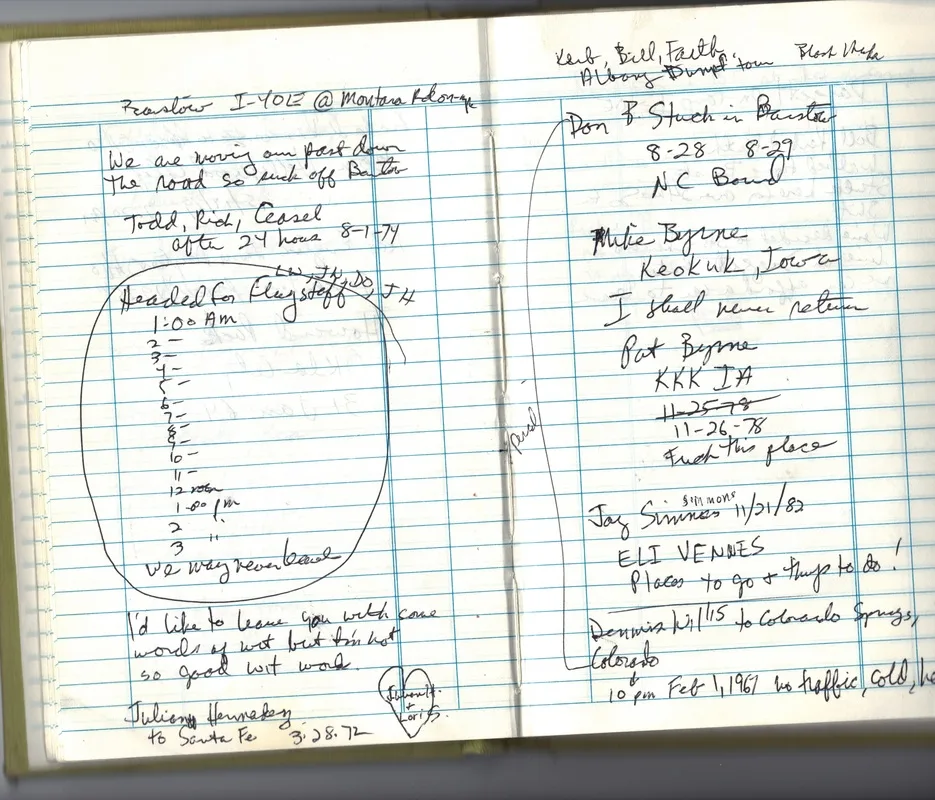 Barstow I-40E @ Montara Rd on-
We are moving our past down
the road so fuck off Barstow
Todd, Rich, Ceasel
after 24 hours 8-1-74
LW, JH, DO, JH
Headed for Flagstaff
1:00 Am
2 —
3 —
4 —
5 —
6 —
7 —
8 —
9 —
10 —
11 —
12 noon
1 00 pm
2 "
3 "
we may never leave
I'd like to leave you with some
words of wot but I'm not
so good wit words.
+
Lori S.
Julian Hennesey
to Santa Fe 3.28.72
Bill, Faith
Albany tour
Don B Stuck in Barstow
8-28 8-29
NC Bound
Mike Byrne
Keokuk, Iowa
I shall never return
Pat Byrne
KKK IA
11-25-78
11-26-78
Fuck this place
Simmons
Jay Simmos 11/21/82
ELI VENNES
Places to go & things to do!
Dennis to Colorado Springs,
Colorado
10 pm Feb 1, 1967 no traffic, cold,